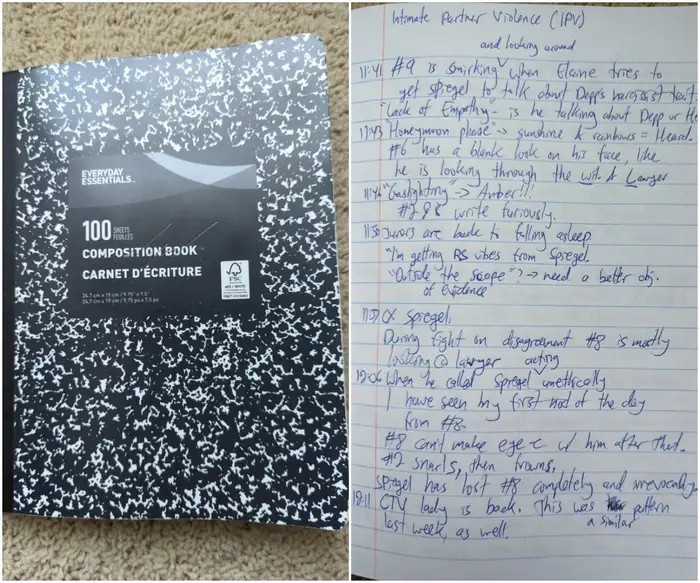 EVERYDAY
ESSENTIALS
100 SHEETS
FEUILLES
COMPOSITION BOOK
CARNET D'ÉCRITURE
24.7 cm x 19 cm / 9.75" x 7.5"
24,7 cm x 19 cm / 9,75 po x 7,5 po
FSC
MIX
Intimate Partner Violence (IPV)
and looking around
11:41 #9 is smirking when Elaine tries to
get spiegel to talk about Depp's narcissist trait
"Lack of Empathy" - is he talking about Depp or He
11:43 "Honeymoon phase" → sunshine & rainbows = Heard.
#6 has a blank look on his face, like
he is looking through the wit. & Lawyer
11:46 "Gaslighting" → Amber!!!
#2 & 8 write furiously.
11:50 Jurors are back to falling asleep
"I'm getting RS vibes from Spiegel.
"Outside the scope"? → need a better obj.
of evidence
11:57 X Spiegel.
During fight on disagreement #8 is mostly
looking @ lawyer
acting
12:06 When he called Spiegel unethically
I have seen my first nod of the day
from #8.
#8 can't make eye c w/ him after that.
#2 snarls, then frowns.
Spiegel has lost #8 completely and irrevocably.
12:11 CTV lady is back. This was pattern
a similar
last week, as well.